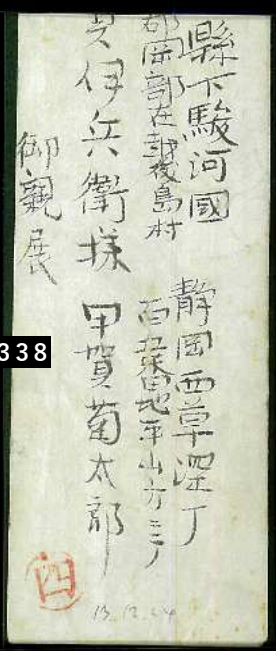 縣下駿河國
郡岡部在越後島村
伊兵衛様
御親展
静岡西草深丁
百番地平山方ニテ
甲賀菊太郎
四
338
13.12.24